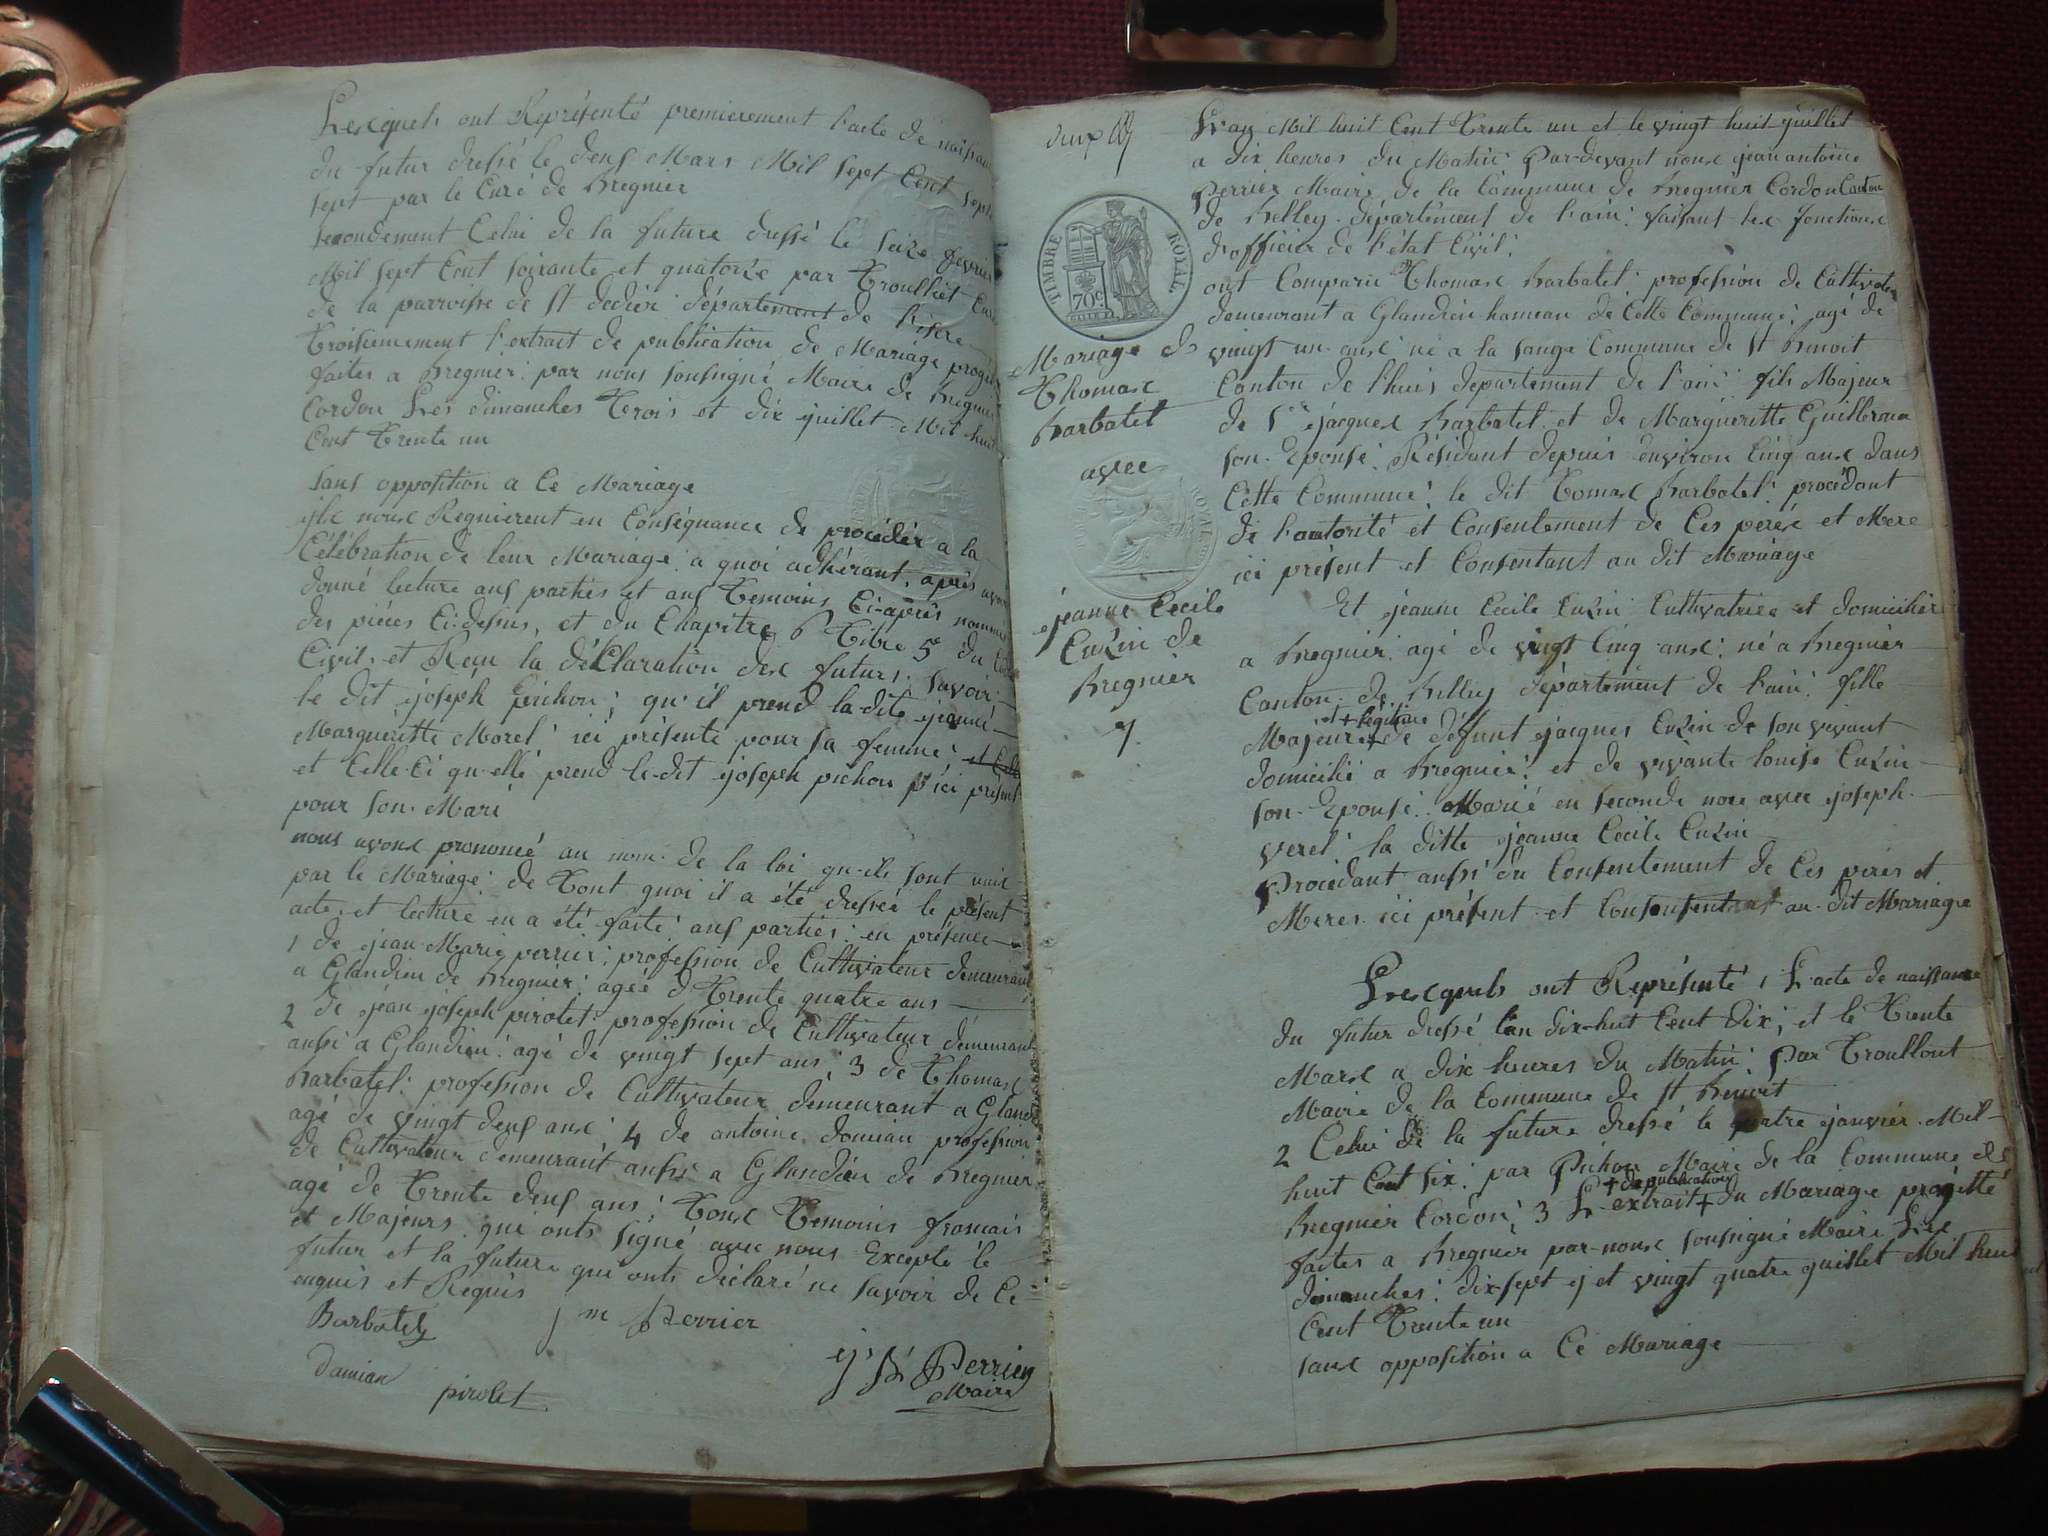 Lesquels ont Représenté premierement l'acte de naissan
du futur dressé le deux Mars Mil sept Cent septe
sept par le Curé de Bregnier
secondement Celui de la future dressé le seize fevrier
Mil sept Cent soixante et quatorze par Trouilliet Curé
de la parroisse de St dedier département de l'isere
Troisiemement l'extrait de publication de Mariage projet
faites a Bregnier par nous soussigné Maire de Bregnier
Cordon Les dimanches Trois et dix juillet Mil huit
Cent Trente un
sans opposition a Ce Mariage
ils nous Requierent en Conséquance de procéder a la
Célébration de leur Mariage a quoi adhérant, après avoir
donné lecture aux parties et aux Temoins Ci-après nommé
des pièces Ci-dessus, et du Chapitre 6 Titre 5e du Code
Civil, et Reçu la déClaration des futurs, savoir
le dit joseph pichon; qu'il prend la dite jeanne
Margueritte Morel ici présente pour sa femme; et Celle
et Celle-Ci qu'elle prend le-dit joseph pichon ici présent
pour son Mari
nous avons prononcé au nom de la loi qu'ils sont unis
par le Mariage de Tout quoi il a été dressée le présent
acte, et lecture en a été faite aux parties en présence
1 de jean Marie perrier profession de Cultivateur demeurant
a Glandieu de Bregnier agée d Trente quatre ans
2 de jean joseph pirolet profession de Cultivateur demeurant
aussi a Glandieu agé de vingt sept ans; 3 de Thomas
Barbatel profession de Cultivateur demeurant a Glandi
agé de vingt deux ans; 4 de antoine domian profession
de Cultivateur demeurant aussi a Glandieu de Bregnier
agé de Trente deux ans; Tous Temoins fransais
et Majeurs qui onts signé avec nous Excepté le
futur et la future qui onts déclaré ne savoir de Ce
enquis et Requis
Barbatel j m Perrier
Damian pirolet
Perrier
Maire
deux
L'an Mil huit Cent Trente un et le vingt huit juillet
a dix heures du Matin Par-devant nous jean antoine
Perrier Maire de la Commune de Bregnier Cordon Canton
de Belley département de l'ain faisant les fonctions
d'officier de l'état Civil
TIMBRE ROYAL
70c
ont Comparu Thomas Barbatel profession de Cultivateur
demeurant a Glandieu hameau de Cette Commune; agé de
vingt un ans né a la sange Commune de St Benoit
Canton de l'huis département de l'ain fils Majeur
de Sr jacques Barbatel et de Margueritte Guillermin
son Epouse Résidant depuis environ Cinq ans dans
Cette Commune le dit Tomas Barbatel procédant
de l'autorité et Consentement de Ces pères et Mere
ici présent et Consentant au dit Mariage
Mariage de
Thomas
Barbatel
avec
jeanne Cecile
Cuzin de
Bregnier
Et jeanne Cecile Cuzin Cultivatrice et domicilié
a Bregnier agé de vingt Cinq ans né a Bregnier
Canton de Belley département de l'ain fille
et + légitime
Majeure + de défunt jacques Cuzin de son vivant
domicilié a Bregnier et de vivante louise Cuzin
son Epouse Marié en seconde noce avec joseph
verel la ditte jeanne Cecile Cuzin
Procédant aussi du Consentement de Ces pères et
Meres ici présent et Consentant au dit Mariage
Lesquels ont Représenté 1 L'acte de naissance
du futur dressé l'an dix-huit Cent dix; et le Trente
Mars a dix heures du Matin Par Troullout
Maire de la Commune de St Benoit
2 Celui de la future dressé le quatre janvier Mil
huit Cent six par Pichon Maire de la Commune de
+ de publication
Bregnier Cordon; 3 L'extrait + du Mariage projetté
faites a Bregnier par nous soussigné Maire Les
dimanches dix-sept et vingt quatre juillet Mil huit
Cent Trente un
sans opposition a Ce Mariage